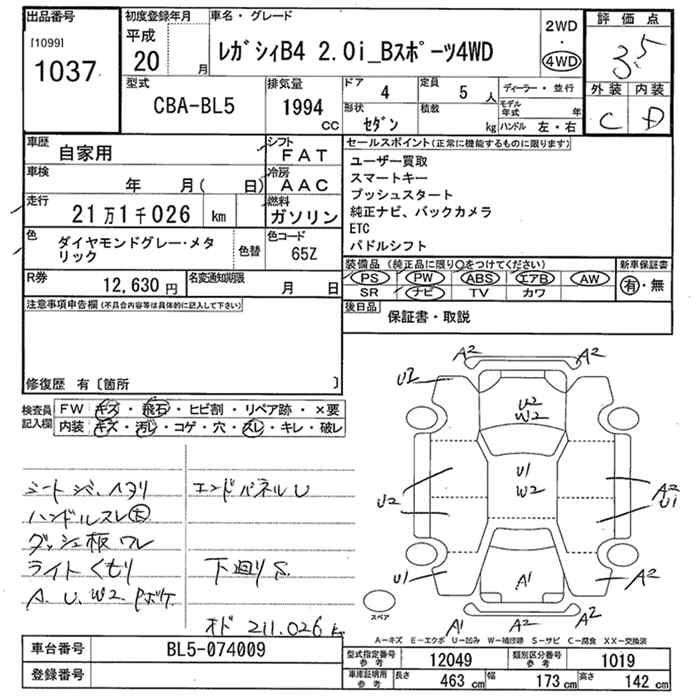 出品番号
[1099]
1037
初度登録年月
平成
20 月
車名・グレード
レガシィB4 2.0i_Bスポーツ4WD
2WD
・
4WD
評価点
3.5
外装 内装
C D
型式
CBA-BL5
排気量
1994
CC
ドア 4
定員 5 人
形状
セダン
積載 kg
ディーラー・並行
モデル年式 年
ハンドル 左・右
車歴
自家用
シフト
FAT
車検
年 月( 日)
冷房
AAC
走行
21万1千026 km
燃料
ガソリン
色
ダイヤモンドグレー・メタリック
色替
色コード
65Z
R券
12,630 円
名変通知期限
月 日
セールスポイント(正常に機能するものに限ります)
ユーザー買取
スマートキー
プッシュスタート
純正ナビ、バックカメラ
ETC
パドルシフト
装備品(純正品に限り○をつけてください)
PS PW ABS エアB AW
SR ナビ TV カワ
新車保証書
有・無
後日品
保証書・取説
注意事項申告欄(不具合内容等は具体的に記入して下さい)
修復歴 有〔箇所 〕
検査員記入欄
FW キズ・飛石・ヒビ割・リペア跡・×要
内装 キズ・汚レ・コゲ・穴・スレ・キレ・破レ
シートシミ、ヘタリ
ハンドルスレ大
ダッシュ板ワレ
ライトくもり
A. U. W2. Pボケ
エンドパネルU
下廻りS
オド 211.026k
A2 A2
U2
U2
W2
U1
W2
U2
A2
U1
U1
A1
A2
A1 A2
スペア
A－キズ E－エクボ U－凹み W－補修跡 S－サビ C－腐食 XX－交換済
車台番号
BL5-074009
登録番号
型式指定番号
参考
12049
類別区分番号
参考
1019
車庫証明用
参考
長さ 463 cm
幅 173 cm
高さ 142 cm